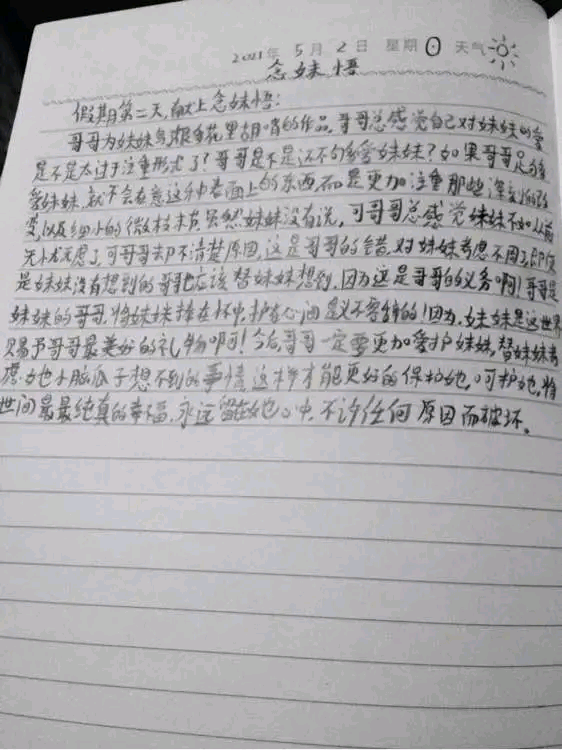 2021年 5月 2日 星期 0 天气
念妹悟
假期第二天,献上念妹悟:
哥哥为妹妹 花里胡哨的作品,哥哥总感觉自己对妹妹的爱
是不是太过于注重形式了?哥哥是不是还不够爱妹妹?如果哥哥足够
爱妹妹,就不会在意这种表面上的东西,而是更加注重那些深刻的改
变,以及细小的微枝末节,虽然妹妹没有说,可哥哥总感觉妹妹不如从前
无小尤无虑了,可哥哥却不清楚原因,这是哥哥的错,对妹妹考虑不周了,即使
是妹妹没有想到的哥哥也应该替妹妹想到,因为这是哥哥的义务啊!哥哥是
妹妹的哥哥,将妹妹捧在怀中,护在心间是义不容辞的!因为,妹妹是这世界
赐予哥哥最美好的礼物啊!今后,哥哥一定要更加爱护妹妹,替妹妹考
虑她小脑瓜子想不到的事情,这样才能更好的保护她,呵护她,将
世间最最纯真的幸福,永远留在她心中,不许任何原因而破坏。